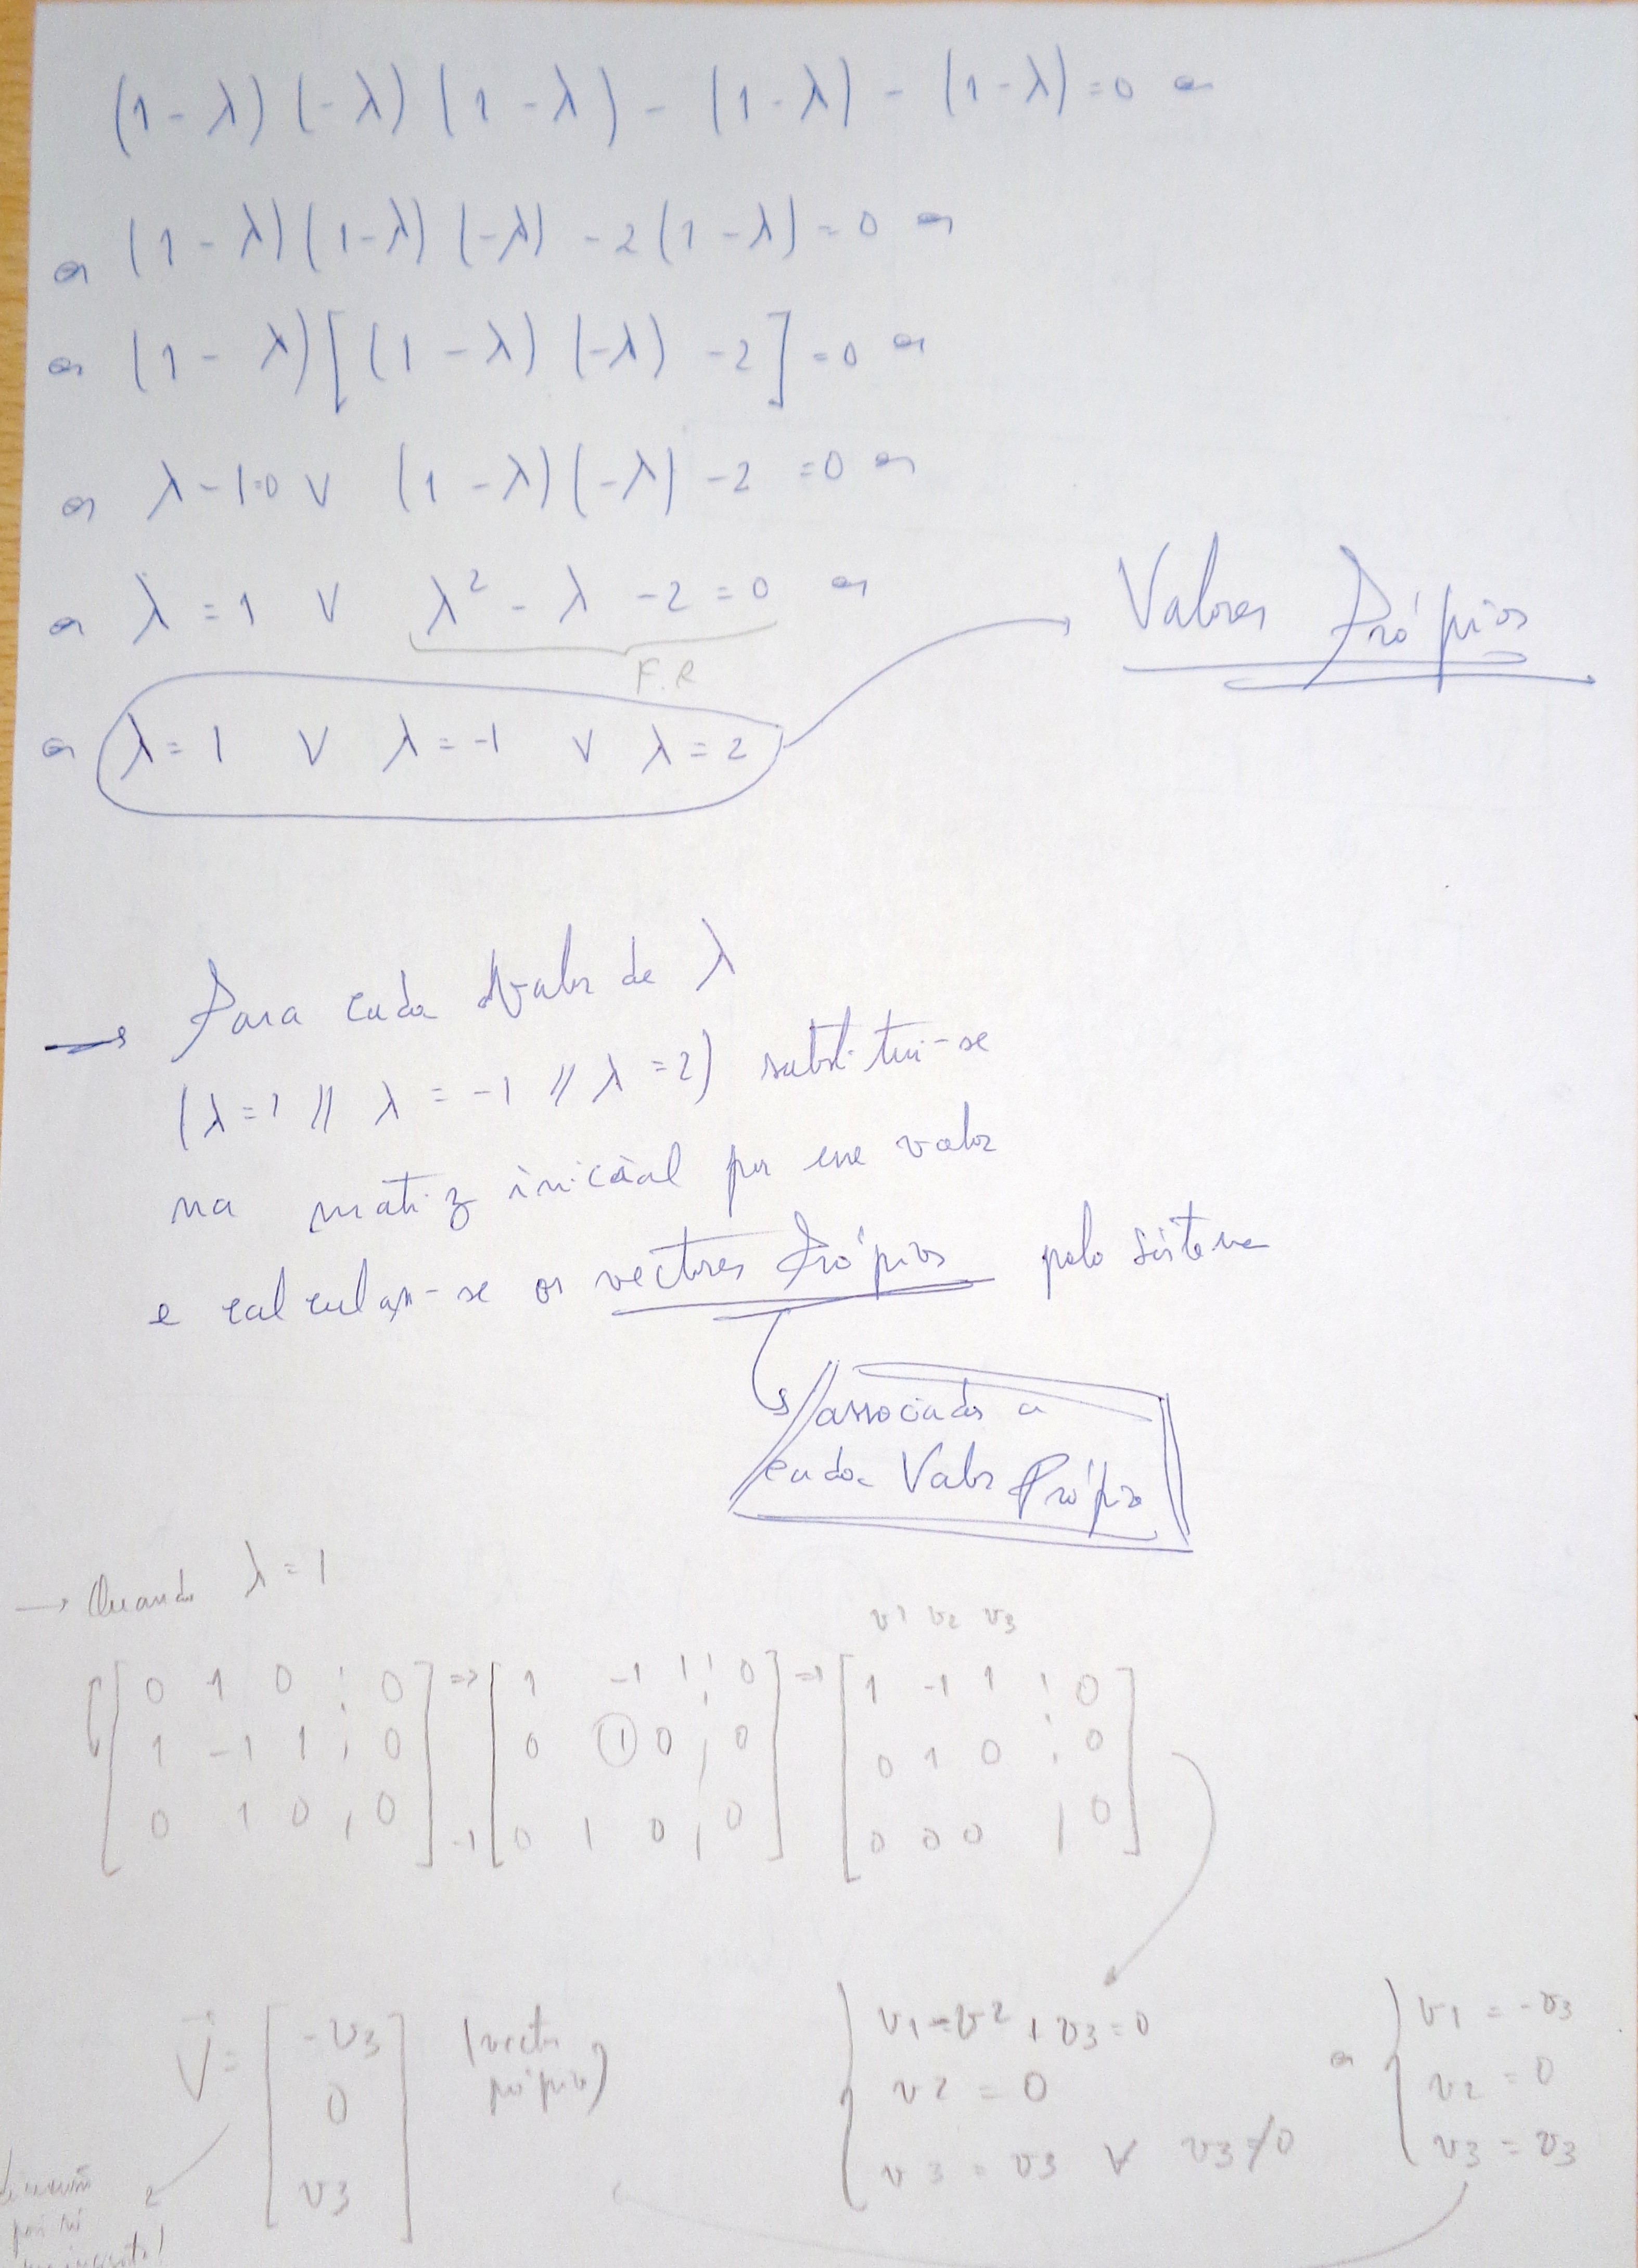 (1 - λ) (-λ) (1 - λ) - (1 - λ) - (1 - λ) = 0 ⇔
⇔ (1 - λ) (1 - λ) (-λ) - 2 (1 - λ) = 0 ⇔
⇔ (1 - λ) [(1 - λ) (-λ) - 2] = 0 ⇔
⇔ λ - 1 = 0 ∨ (1 - λ) (-λ) - 2 = 0 ⇔
⇔ λ = 1 ∨ λ² - λ - 2 = 0 ⇔
F.R
Valores Própios
⇔ λ = 1 ∨ λ = -1 ∨ λ = 2
→ Para cada valor de λ
(λ = 1 // λ = -1 // λ = 2) substitui-se
na matriz inicial por esse valor
e calculam-se os vectores Própios pelo sistema
associados a
cada Valor Própio
→ Quando λ = 1
v1 v2 v3
[0 1 0 ¦ 0] ⇒ [1 -1 1 ¦ 0] ⇒ [1 -1 1 ¦ 0]
[1 -1 1 ¦ 0] [0 1 0 ¦ 0] [0 1 0 ¦ 0]
[0 1 0 ¦ 0] -1 [0 1 0 ¦ 0] [0 0 0 ¦ 0]
{ v1 - v2 + v3 = 0 ⇔ { v1 = -v3
v2 = 0 v2 = 0
v3 = v3 ∀ v3 ≠ 0 v3 = v3
V⃗ = [-v3 (vector
0 própio)
v3]